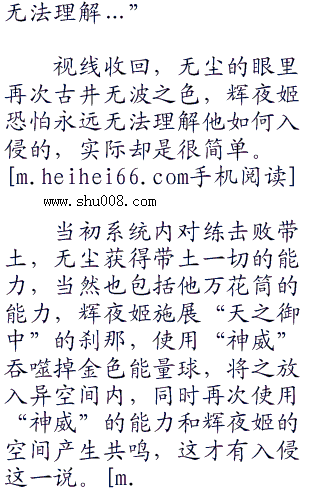 无法理解…”
视线收回，无尘的眼里
再次古井无波之色，辉夜姬
恐怕永远无法理解他如何入
侵的，实际却是很简单。
[m.heihei66.com手机阅读]
www.shu008.com
当初系统内对练击败带
土，无尘获得带土一切的能
力，当然也包括他万花筒的
能力，辉夜姬施展“天之御
中”的刹那，使用“神威”
吞噬掉金色能量球，将之放
入异空间内，同时再次使用
“神威”的能力和辉夜姬的
空间产生共鸣，这才有入侵
这一说。[m.